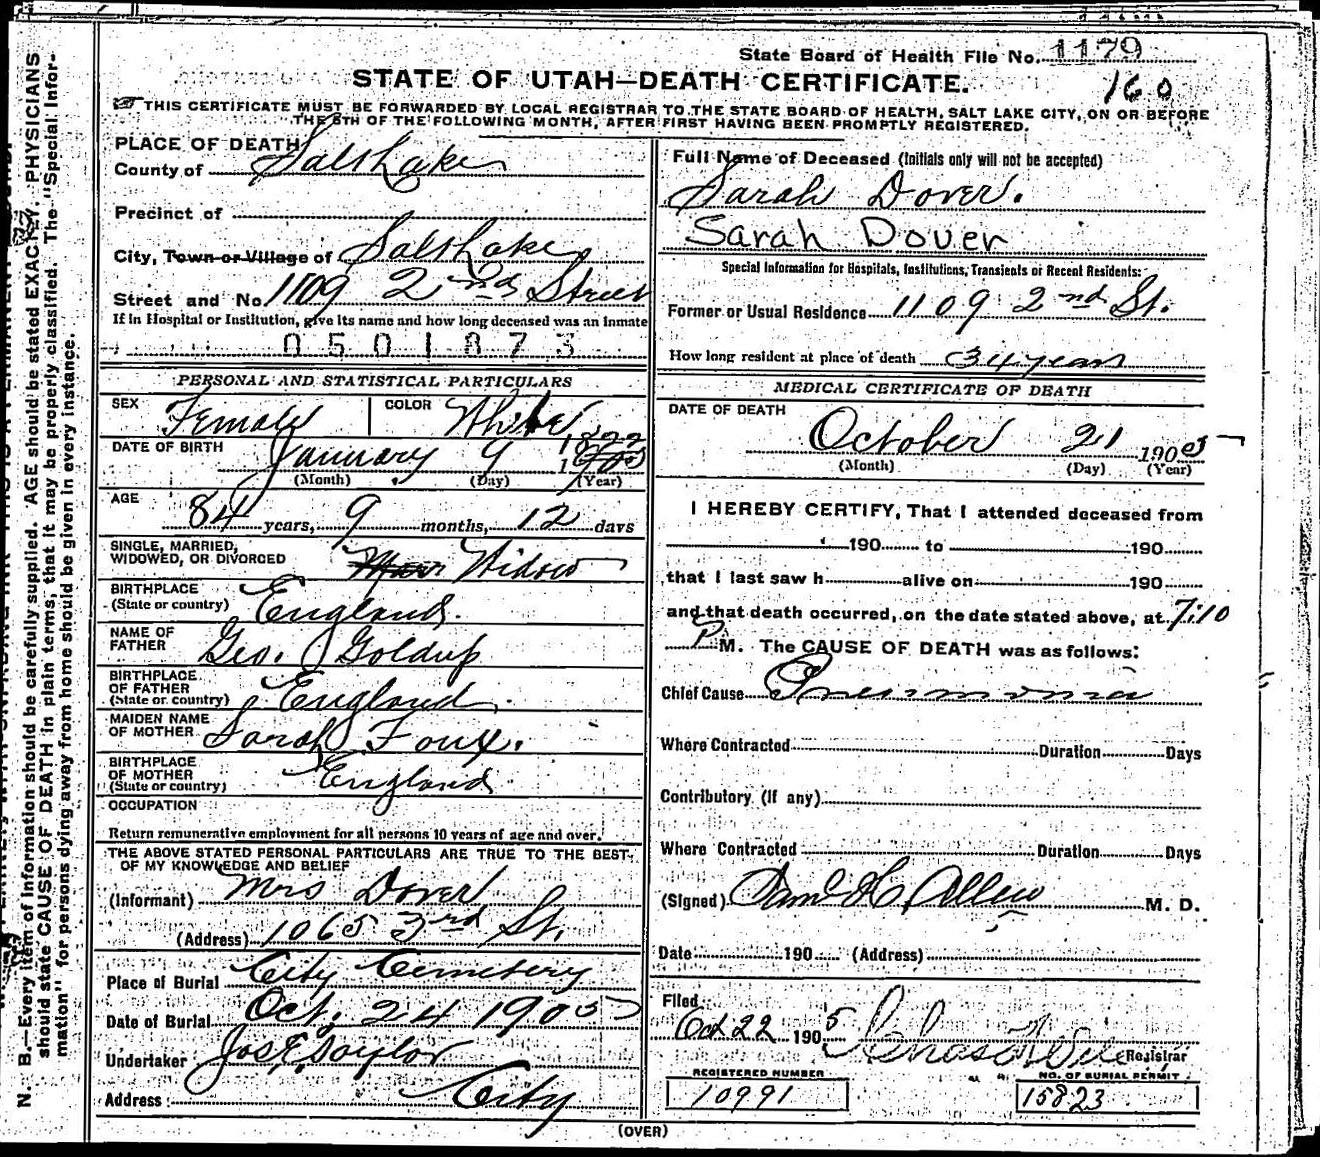 State Board of Health File No. 1179
160
STATE OF UTAH—DEATH CERTIFICATE.
THIS CERTIFICATE MUST BE FORWARDED BY LOCAL REGISTRAR TO THE STATE BOARD OF HEALTH, SALT LAKE CITY, ON OR BEFORE
THE 5TH OF THE FOLLOWING MONTH, AFTER FIRST HAVING BEEN PROMPTLY REGISTERED.
PLACE OF DEATH
County of Salt Lake
Precinct of
City, Town or Village of Salt Lake
Street and No. 1109 2nd Street
If in Hospital or Institution, give its name and how long deceased was an inmate
0501873
PERSONAL AND STATISTICAL PARTICULARS
SEX Female COLOR White
DATE OF BIRTH January 9 1822
(Month) (Day) (Year)
AGE 84 years, 9 months, 12 days
SINGLE, MARRIED,
WIDOWED, OR DIVORCED Marr Widow
BIRTHPLACE
(State or country) England.
NAME OF
FATHER Geo. Goldup
BIRTHPLACE
OF FATHER
(State or country) England.
MAIDEN NAME
OF MOTHER Sarah Foux.
BIRTHPLACE
OF MOTHER
(State or country) England
OCCUPATION
Return remunerative employment for all persons 10 years of age and over.
THE ABOVE STATED PERSONAL PARTICULARS ARE TRUE TO THE BEST
OF MY KNOWLEDGE AND BELIEF
(Informant) Mrs Dover
(Address) 1065 3rd St.
Place of Burial City Cemetery
Date of Burial Oct. 24 1905
Undertaker Jos E Taylor
Address City
Full Name of Deceased (Initials only will not be accepted)
Sarah Dover.
Sarah Dover
Special Information for Hospitals, Institutions, Transients or Recent Residents:
Former or Usual Residence 1109 2nd St.
How long resident at place of death 34 years
MEDICAL CERTIFICATE OF DEATH
DATE OF DEATH
October 21 1905
(Month) (Day) (Year)
I HEREBY CERTIFY, That I attended deceased from
190 to 190
that I last saw h alive on 190
and that death occurred, on the date stated above, at 7:10
P M. The CAUSE OF DEATH was as follows:
Chief Cause Pneumonia
Where Contracted Duration Days
Contributory (if any)
Where Contracted Duration Days
(Signed) Saml H. Allen M. D.
Date 190 (Address)
Filed
Oct 22 1905
Registrar
REGISTERED NUMBER
10991
NO. OF BURIAL PERMIT
15823
(OVER)
N. B.—Every item of information should be carefully supplied. AGE should be stated EXACTLY. PHYSICIANS
should state CAUSE OF DEATH in plain terms, that it may be properly classified. The "Special Infor-
mation" for persons dying away from home should be given in every instance.